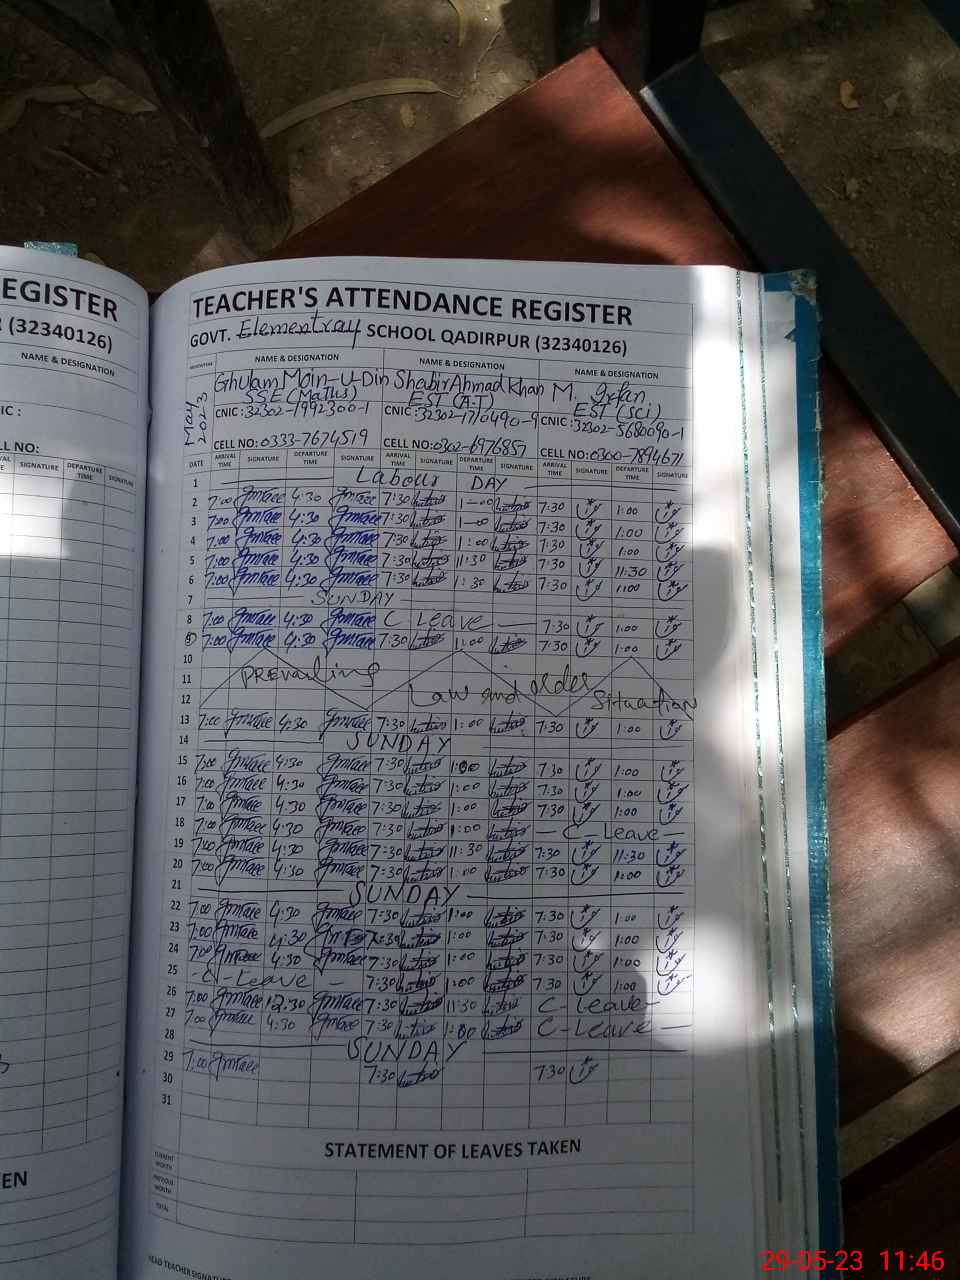 EGISTER
(32340126)
NAME & DESIGNATION
IC :
LL NO:
ARRIVAL TIME SIGNATURE DEPARTURE TIME SIGNATURE
EN
TEACHER'S ATTENDANCE REGISTER
GOVT. Elementray SCHOOL QADIRPUR (32340126)
NAME & DESIGNATION NAME & DESIGNATION NAME & DESIGNATION
May 2023
Ghulam Moin-u-Din Shabir Ahmad Khan M. Irfan
SSE (Maths) EST (A.T) EST (Sci)
CNIC: 32302-1992300-1 CNIC: 32302-1710490-9 CNIC: 32302-5680090-1
CELL NO: 0333-7674519 CELL NO: 0302-6976857 CELL NO: 0300-7894671
DATE ARRIVAL TIME SIGNATURE DEPARTURE TIME SIGNATURE ARRIVAL TIME SIGNATURE DEPARTURE TIME SIGNATURE ARRIVAL TIME SIGNATURE DEPARTURE TIME SIGNATURE
1 Labour DAY
2 7:00 4:30 7:30 1-00 7:30 1:00
3 7:00 4:30 7:30 1-00 7:30 1:00
4 7:00 4:30 7:30 1:00 7:30 1:00
5 7:00 4:30 7:30 11:30 7:30 11:30
6 7:00 4:30 7:30 1:30 7:30 1:00
7 SUNDAY
8 7:00 4:30 C Leave 7:30 1:00
9 7:00 4:30 7:30 1:00 7:30 1:00
10
11 PREVAILING Law and order Situation
12
13 7:00 4:30 7:30 1:00 7:30 1:00
14 SUNDAY
15 7:00 4:30 7:30 1:00 7:30 1:00
16 7:00 4:30 7:30 1:00 7:30 1:00
17 7:00 4:30 7:30 1:00 7:30 1:00
18 7:00 4:30 7:30 1:00 - C-Leave -
19 7:00 4:30 7:30 11:30 7:30 11:30
20 7:00 4:30 7:30 1:00 7:30 1:00
21 SUNDAY
22 7:00 4:30 7:30 1:00 7:30 1:00
23 7:00 4:30 7:30 1:00 7:30 1:00
24 7:00 4:30 7:30 1:00 7:30 1:00
25 - C-Leave - 7:30 1:00 7:30 1:00
26 7:00 12:30 7:30 11:30 C-Leave-
27 7:00 4:30 7:30 1:00 C-Leave -
28 SUNDAY
29 7:00 7:30 7:30
30
31
STATEMENT OF LEAVES TAKEN
CURRENT MONTH
PREVIOUS MONTH
TOTAL
HEAD TEACHER SIGNATURE
29-05-23 11:46